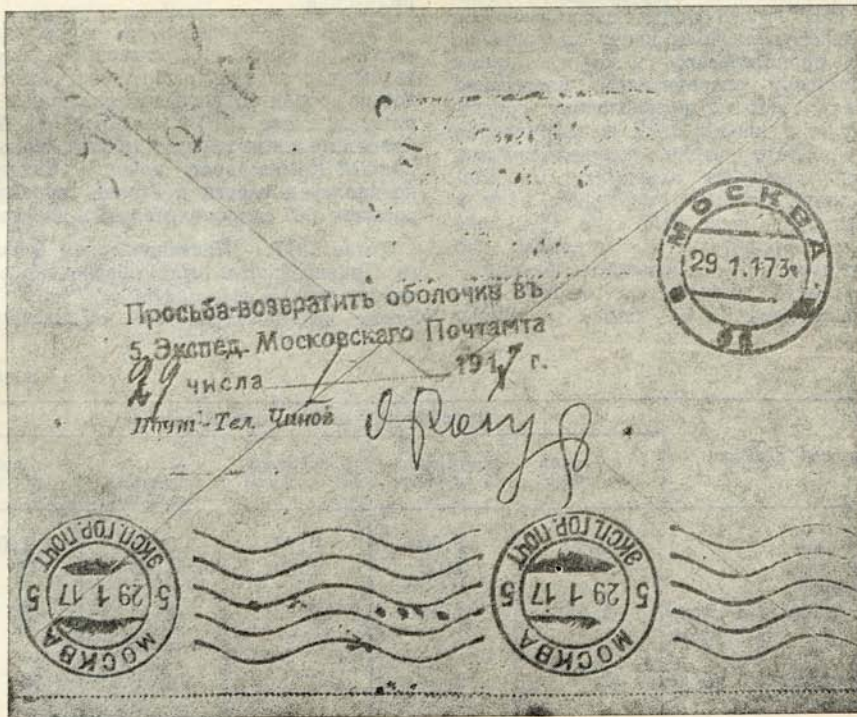 МОСКВА
29 1.17 3ч
Просьба-возвратить оболочив въ
5 Экспед. Московскаго Почтамта
29 числа 1 1917 г.
Почт-Тел. Чинов
МОСКВА 5 5
29 1 17
ЭКСП. ГОР. ПОЧТ
МОСКВА 5 5
29 1 17
ЭКСП. ГОР. ПОЧТ